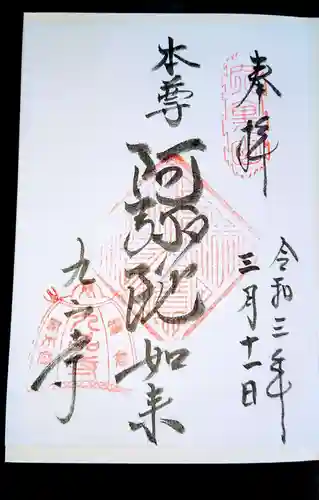 奉拝
令和三年
三月十一日
本尊
阿弥陀如来